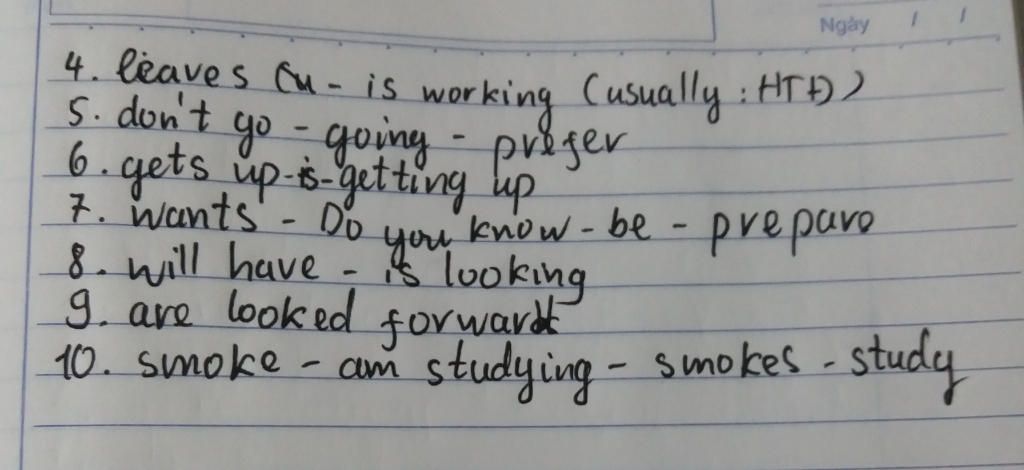 Ngày / /
4. leaves - is working (usually: HTĐ)
5. don't go - going - prefer
6. gets up - is - getting up
7. wants - Do you know - be - prepare
8. will have - is looking
9. are looked forward
10. smoke - am studying - smokes - study